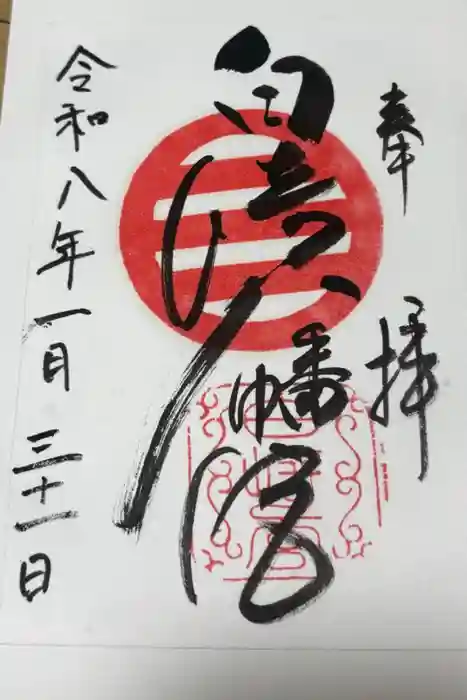 奉拝
八幡宮
令和八年一月三十一日